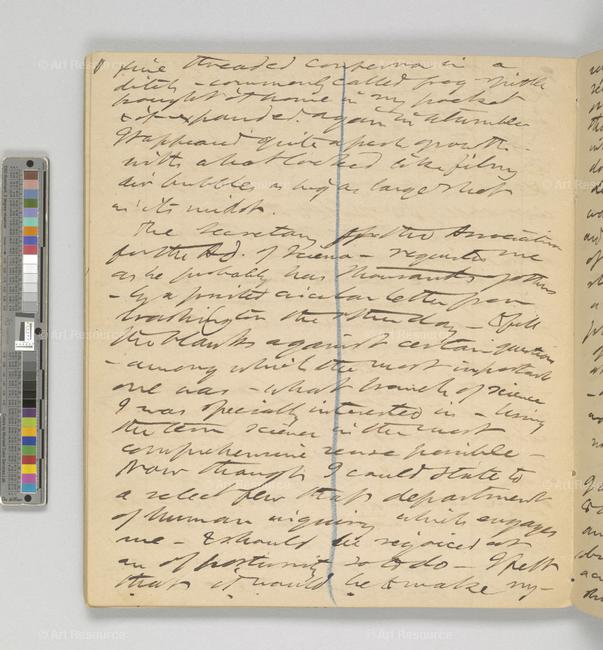 fine threaded conferva in a
ditch - commonly called frog-spittle
brought it home in my pocket
& it expanded again in a tumbler
It appeared quite a fresh growth -
with what looked like filmy
air bubbles as big as large shot
in its midst.
The Secretary of the Association
for the Ad. of Science - requested me
as he probably has thousands of others
- by a printed circular letter from
Washington the other day to fill
the blanks against certain questions
- among which the most important
one was - what branch of science
I was specially interested in - using
the term science in the most
comprehensive sense possible -
Now though I could state to
a select few that department
of human inquiry which engages
me - & should be rejoiced at
an opportunity so to do - I felt
that it would be to make my-